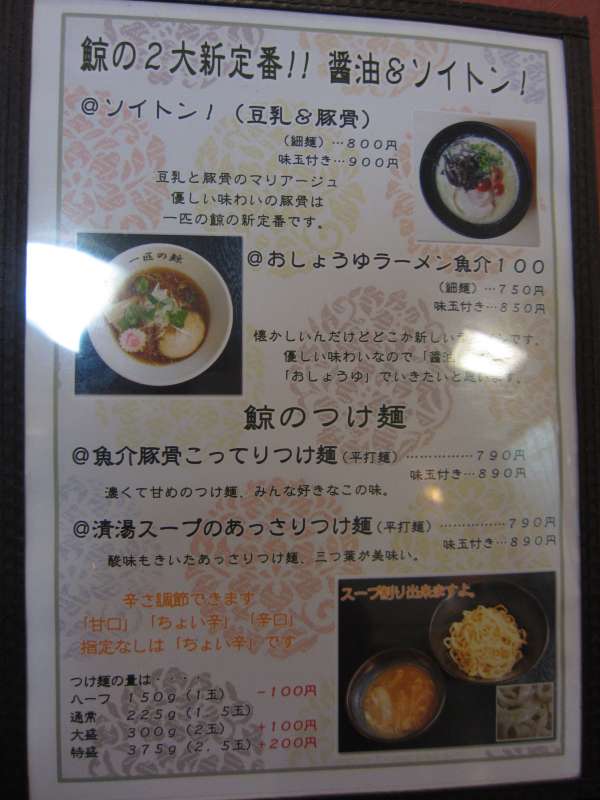 鯨の２大新定番!! 醤油&ソイトン!
@ソイトン!（豆乳&豚骨）
（細麺）…８００円
味玉付き…９００円
豆乳と豚骨のマリアージュ
優しい味わいの豚骨は
一匹の鯨の新定番です。
一匹の鯨
@おしょうゆラーメン魚介１００
（細麺）…７５０円
味玉付き…８５０円
懐かしいんだけどどこか新しい です。
優しい味わいなので「醤油
「おしょうゆ」でいきたいと思います。
鯨のつけ麺
@魚介豚骨こってりつけ麺（平打麺）……………７９０円
味玉付き…８９０円
濃くて甘めのつけ麺、みんな好きなこの味。
@清湯スープのあっさりつけ麺（平打麺）……………７９０円
味玉付き…８９０円
酸味もきいたあっさりつけ麺、三つ葉が美味い。
辛さ調節できます
「甘口」「ちょい辛」「辛口」
指定なしは「ちょい辛」です
スープ割り出来ますよ。
つけ麺の量は・・・・
ハーフ １５０ｇ（１玉） −１００円
通常 ２２５ｇ（１．５玉）
大盛 ３００ｇ（２玉） +１００円
特盛 ３７５ｇ（２．５玉） +２００円